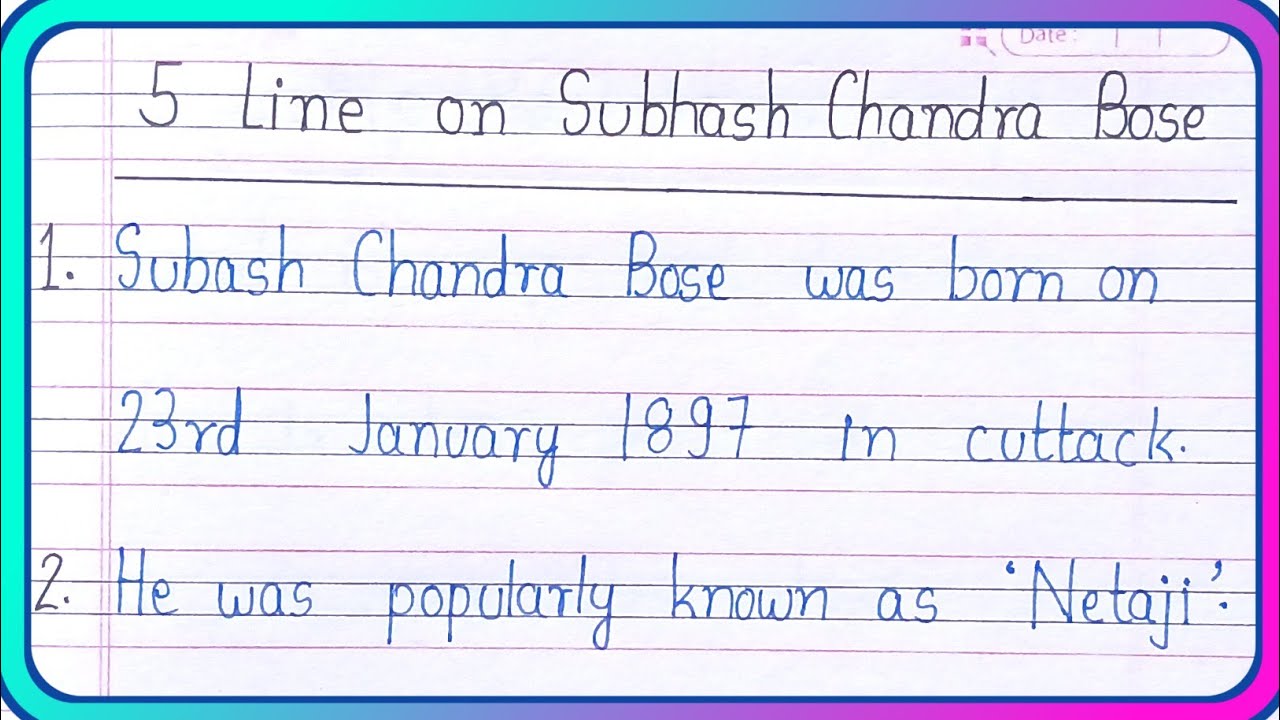 Date:
5 Line on Subhash Chandra Bose
1. Subash Chandra Bose was born on
23rd January 1897 in cuttack.
2. He was popularly known as 'Netaji'.